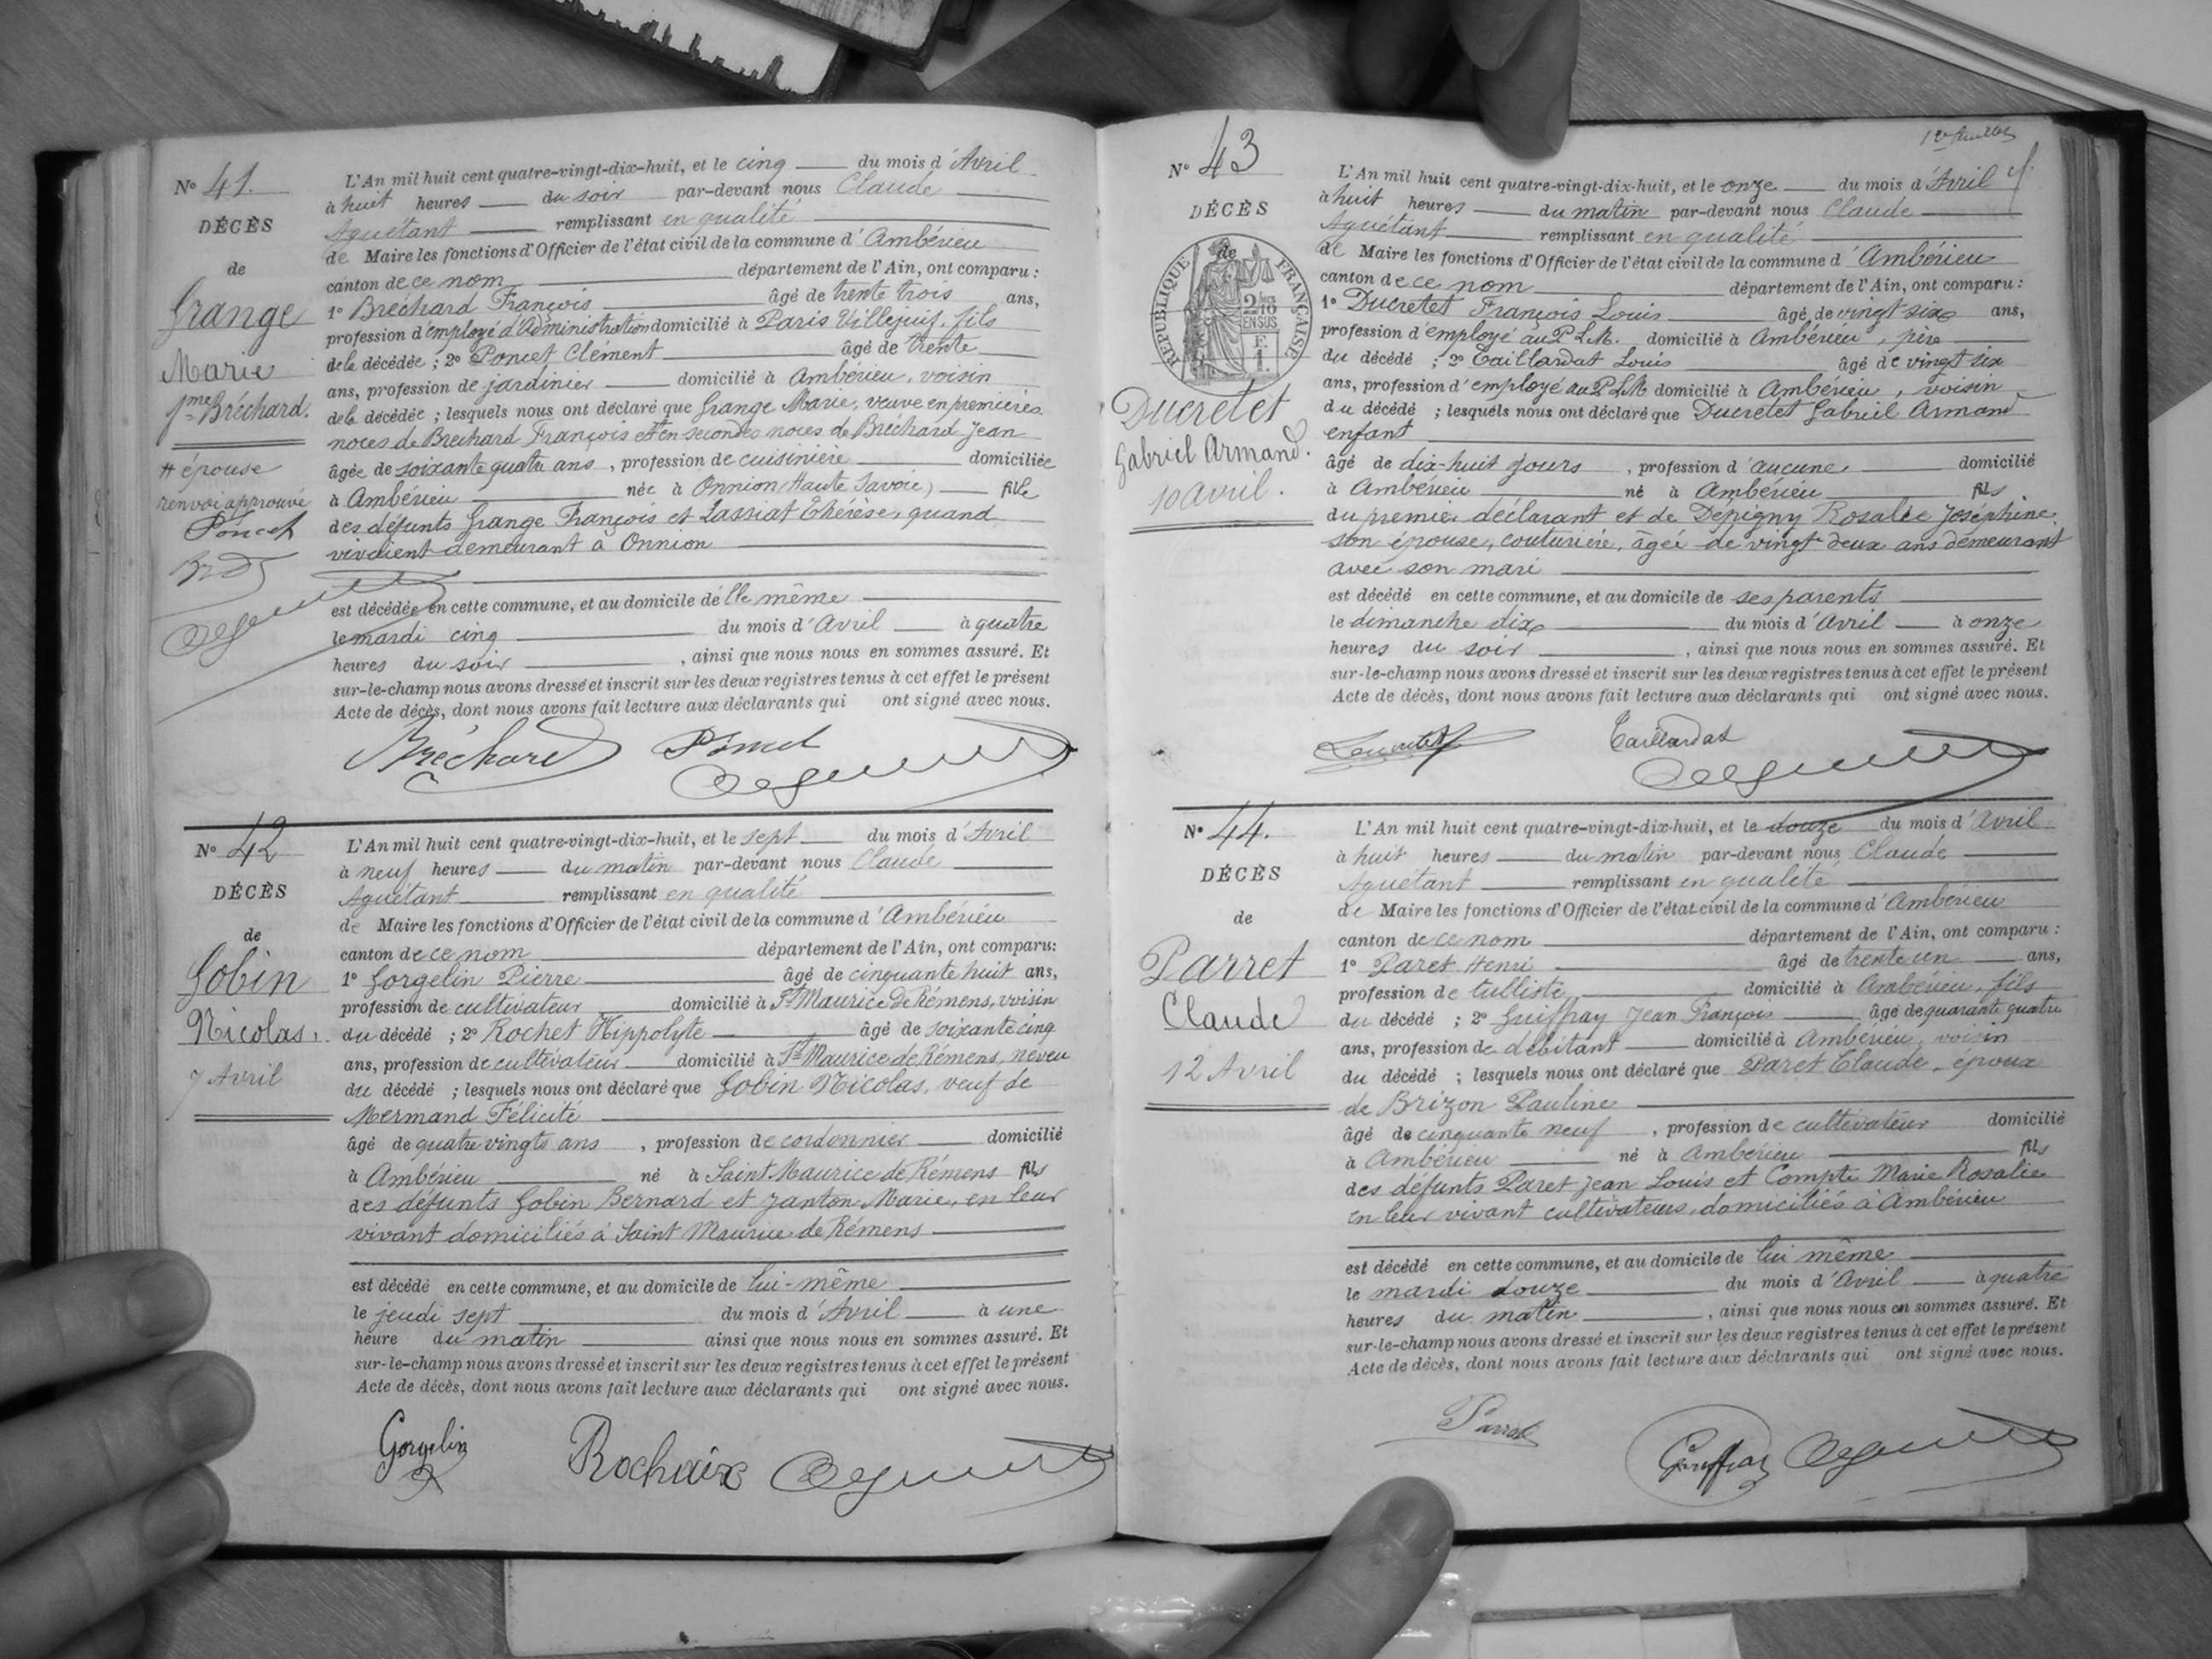 N° 41.
DÉCÈS
de
Grange
Marie
fme Bréchard.
# épouse
renvoi approuvé
Poncet
L'An mil huit cent quatre-vingt-dix-huit, et le cinq du mois d'Avril
à huit heures du soir par-devant nous Claude
Aguétant remplissant en qualité
de Maire les fonctions d'Officier de l'état civil de la commune d'Ambérieu
canton de ce nom département de l'Ain, ont comparu :
1° Bréchard François âgé de trente trois ans,
profession d'employé d'Administration domicilié à Paris Villejuif, fils
de la décédée ; 2° Poncet Clément âgé de trente
ans, profession de jardinier domicilié à Ambérieu, voisin
de la décédée ; lesquels nous ont déclaré que Grange Marie, veuve en premières
noces de Bréchard François et # en secondes noces de Bréchard Jean
âgée de soixante quatre ans, profession de cuisinière domiciliée
à Ambérieu née à Onnion (Haute Savoie) fille
des défunts Grange François et Lassiat Thérèse, quand
vivaient demeurant à Onnion
est décédée en cette commune, et au domicile d'elle même
le mardi cinq du mois d'Avril à quatre
heures du soir, ainsi que nous nous en sommes assuré. Et
sur-le-champ nous avons dressé et inscrit sur les deux registres tenus à cet effet le présent
Acte de décès, dont nous avons fait lecture aux déclarants qui ont signé avec nous.
Bréchard Poncet
N° 42
DÉCÈS
de
Gobin
Nicolas,
7 Avril
L'An mil huit cent quatre-vingt-dix-huit, et le sept du mois d'Avril
à neuf heures du matin par-devant nous Claude
Aguétant remplissant en qualité
de Maire les fonctions d'Officier de l'état civil de la commune d'Ambérieu
canton de ce nom département de l'Ain, ont comparu:
1° Gorgelin Pierre âgé de cinquante huit ans,
profession de cultivateur domicilié à St Maurice de Rémens, voisin
du décédé ; 2° Rochet Hippolyte âgé de soixante cinq
ans, profession de cultivateur domicilié à St Maurice de Rémens, neveu
du décédé ; lesquels nous ont déclaré que Gobin Nicolas, veuf de
Mermand Félicité
âgé de quatre vingts ans, profession de cordonnier domicilié
à Ambérieu né à Saint Maurice de Rémens fils
des défunts Gobin Bernard et Janton Marie, en leur
vivant domiciliés à Saint Maurice de Rémens
est décédé en cette commune, et au domicile de lui-même
le jeudi sept du mois d'Avril à une
heure du matin ainsi que nous nous en sommes assuré. Et
sur-le-champ nous avons dressé et inscrit sur les deux registres tenus à cet effet le présent
Acte de décès, dont nous avons fait lecture aux déclarants qui ont signé avec nous.
Gorgelin Rochaix
N° 43
DÉCÈS
de
RÉPUBLIQUE FRANÇAISE
2/10 EN SUS
Ducretet
Gabriel Armand.
10 avril.
L'An mil huit cent quatre-vingt-dix-huit, et le onze du mois d'Avril
à huit heures du matin par-devant nous Claude
Aguétant remplissant en qualité
de Maire les fonctions d'Officier de l'état civil de la commune d'Ambérieu
canton de ce nom département de l'Ain, ont comparu :
1° Ducretet François Louis âgé de vingt six ans,
profession d'employé au P.L.M. domicilié à Ambérieu, père
du décédé ; 2° Taillardat Louis âgé de vingt six
ans, profession d'employé au P.L.M. domicilié à Ambérieu, voisin
du décédé ; lesquels nous ont déclaré que Ducretet Gabriel Armand
enfant
âgé de dix-huit jours, profession d'aucune domicilié
à Ambérieu né à Ambérieu fils
du premier déclarant et de Dépigny Rosalie Joséphine
son épouse, couturière, âgée de vingt deux ans demeurant
avec son mari
est décédé en cette commune, et au domicile de ses parents
le dimanche dix du mois d'Avril à onze
heures du soir, ainsi que nous nous en sommes assuré. Et
sur-le-champ nous avons dressé et inscrit sur les deux registres tenus à cet effet le présent
Acte de décès, dont nous avons fait lecture aux déclarants qui ont signé avec nous.
Taillardat
N° 44.
DÉCÈS
de
Parret
Claude
12 Avril
L'An mil huit cent quatre-vingt-dix-huit, et le douze du mois d'Avril
à huit heures du matin par-devant nous Claude
Aguétant remplissant en qualité
de Maire les fonctions d'Officier de l'état civil de la commune d'Ambérieu
canton de ce nom département de l'Ain, ont comparu :
1° Paret Henri âgé de trente un ans,
profession de tulliste domicilié à Ambérieu, fils
du décédé ; 2° Guiffray Jean François âgé de quarante quatre
ans, profession de débitant domicilié à Ambérieu, voisin
du décédé ; lesquels nous ont déclaré que Paret Claude, époux
de Brizon Pauline
âgé de cinquante neuf, profession de cultivateur domicilié
à Ambérieu né à Ambérieu fils
des défunts Paret Jean Louis et Compte Marie Rosalie
en leur vivant cultivateurs, domiciliés à Ambérieu
est décédé en cette commune, et au domicile de lui même
le mardi douze du mois d'Avril à quatre
heures du matin, ainsi que nous nous en sommes assuré. Et
sur-le-champ nous avons dressé et inscrit sur les deux registres tenus à cet effet le présent
Acte de décès, dont nous avons fait lecture aux déclarants qui ont signé avec nous.
Parret Guiffray